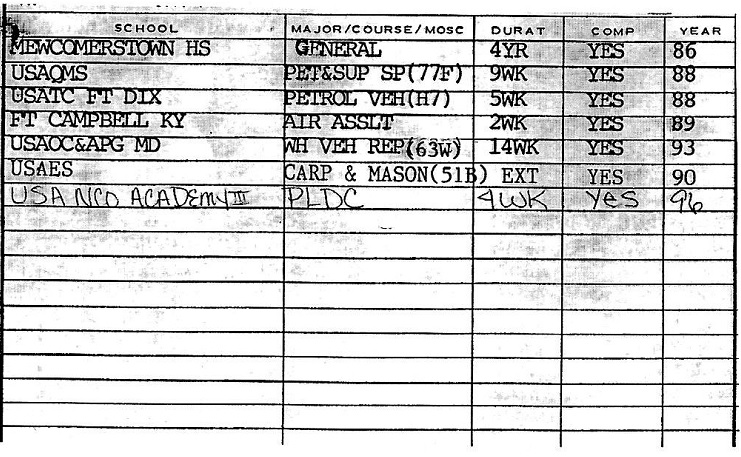 SCHOOL MAJOR/COURSE/MOSC DURAT COMP YEAR
MEWCOMERSTOWN HS GENERAL 4YR YES 86
USAQMS PET&SUP SP(77F) 9WK YES 88
USATC FT DIX PETROL VEH(H7) 5WK YES 88
FT CAMPBELL KY AIR ASSLT 2WK YES 89
USAOC&APG MD WH VEH REP(63W) 14WK YES 93
USAES CARP & MASON(51B) EXT YES 90
USA NCO ACADEMY III PLDC 4WK YES 96